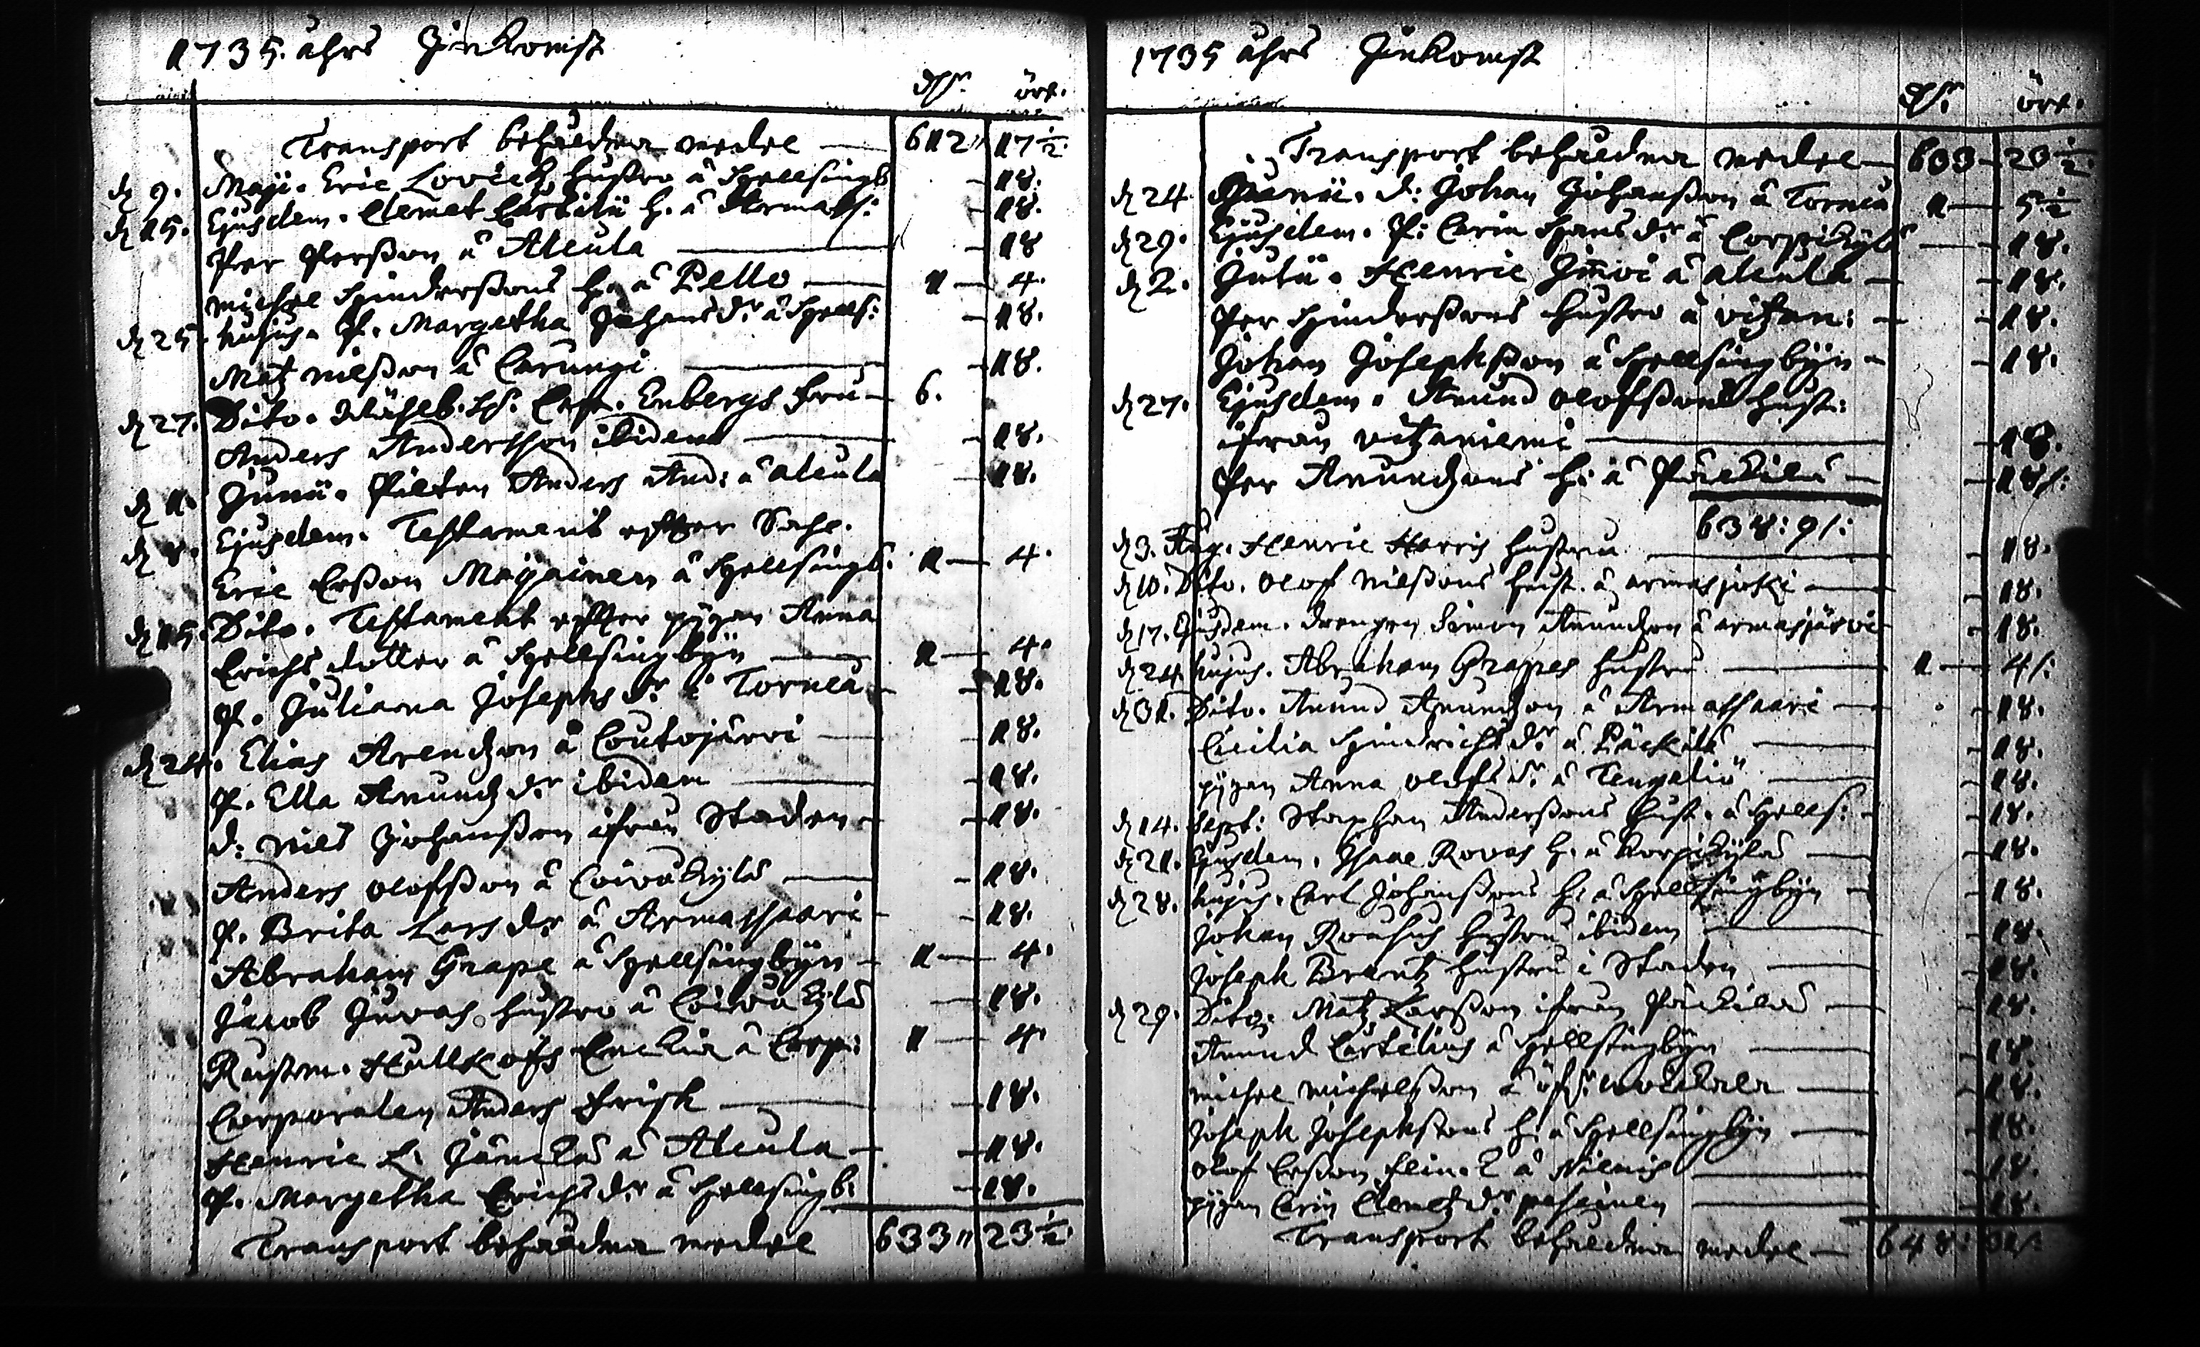 1735. åhrs Jnkomst
dlr. öre.
Transport behåldna medel — 612 17½
d 9. Maji. Eric Lovickz hustro å Hellsingb — 18.
d 15. Ejusdem. Clemet Cartilii h. å Armass: — 18.
Per Perßon å Alcula — 18
Michel Hinderßons h. å Pello — 1 — 4.
d 25. hujus. P. Margetha Johansdr å Hells: — 18.
Matz Nilßon å Carungi — 18.
d 27. Dito. Cap. Enbergs fru — 6.
Anders Andersson ibidem — 18.
d 1. Junii. Pilten Anders And: å Alcula — 18.
d 8. Ejusdem. Testament efter Sahl.
Eric Erßon Majainen å Hellsingb. 1 — 4.
d 15. Dito. Testament effter pigan Anna
Erichsdotter å Hellsingbyn — 1 — 4.
P. Juliana Josephsdr i Torneå — 18.
d 24. Elias Arendzon å Coutojärvi — 18.
P. Ella Amundzdr ibidem — 18.
d: Nils Johanßon ifrån Staden — 18.
Anders Olofßon å Coivukylä — 18.
P. Brita Larsdr å Armassaari — 18.
Abraham Grape å Hellsingbyn — 1 — 4.
Jacob Juvas hustro å Coivukylä — 18.
Rustm. Hullkofs Enckia å Corp: 1 — 4.
Corporalen Anders Frisk — 18.
Henric L. Jänckä å Alcula — 18.
P. Margetha Erichsdr å Hellsingb: — 18.
Transport behåldna medel 633 23½
1735 åhrs Jnkomst
dlr. öre.
Transport behåldna medel — 633 — 23½
d 24 Junii. d: Johan Johanßon å Torneå 1 — 5½
d 29. Ejusdem. P: Carin Hansdr å Corpikylä — 18.
d 2. Julii. Henric Jmvi å Alcula — 18.
Per Hinderßons hustro å Vitzan: — 18.
Johan Josephßon å Hellsingbyn — 18.
d 27. Ejusdem. Amund Olofßons hust:
ifrån Vitzaniemi — 18.
Per Amundzons h: å Päckilä — 18/:
638: 9/:
d 3. Aug. Henric Harris hustru — 18.
d 10. Dito. Olof Nilßons hust. å Armasjocki — 18.
d 17. Ejusdem. Drengen Simon Amundzon å Armasjärvi 18.
d 24 hujus. Abraham Grapes hustru — 1 — 4/:
d 31. Dito. Amund Amundzon å Armassaari — 18.
Cicilia Hindrichsdr å Päckilä — 18.
pigan Anna Olofsdr å Tengeliö — 18.
d 14. Sept: Staphan Anderßons hust. å Hells: — 18.
d 21. Ejusdem. Isaac Rovas h. å Korpikylä — 18.
d 28. hujus. Carl Johanßons h. å Hellsingbyn — 18.
Johan hustru ibidem — 18.
Joseph Brantz hustru i Staden — 18.
d 29. Dito: Matz Larßon ifrån Päckilä — 18.
Amund Cartelius å Hellsingbyn — 18.
Michel Michelßon å — 18.
Joseph Josephßons h. å Hellsingbyn — 18.
Olof Erßon å Niemis — 18.
pigan Carin Clemetzdr — 18.
Transport behåldna medel — 648: